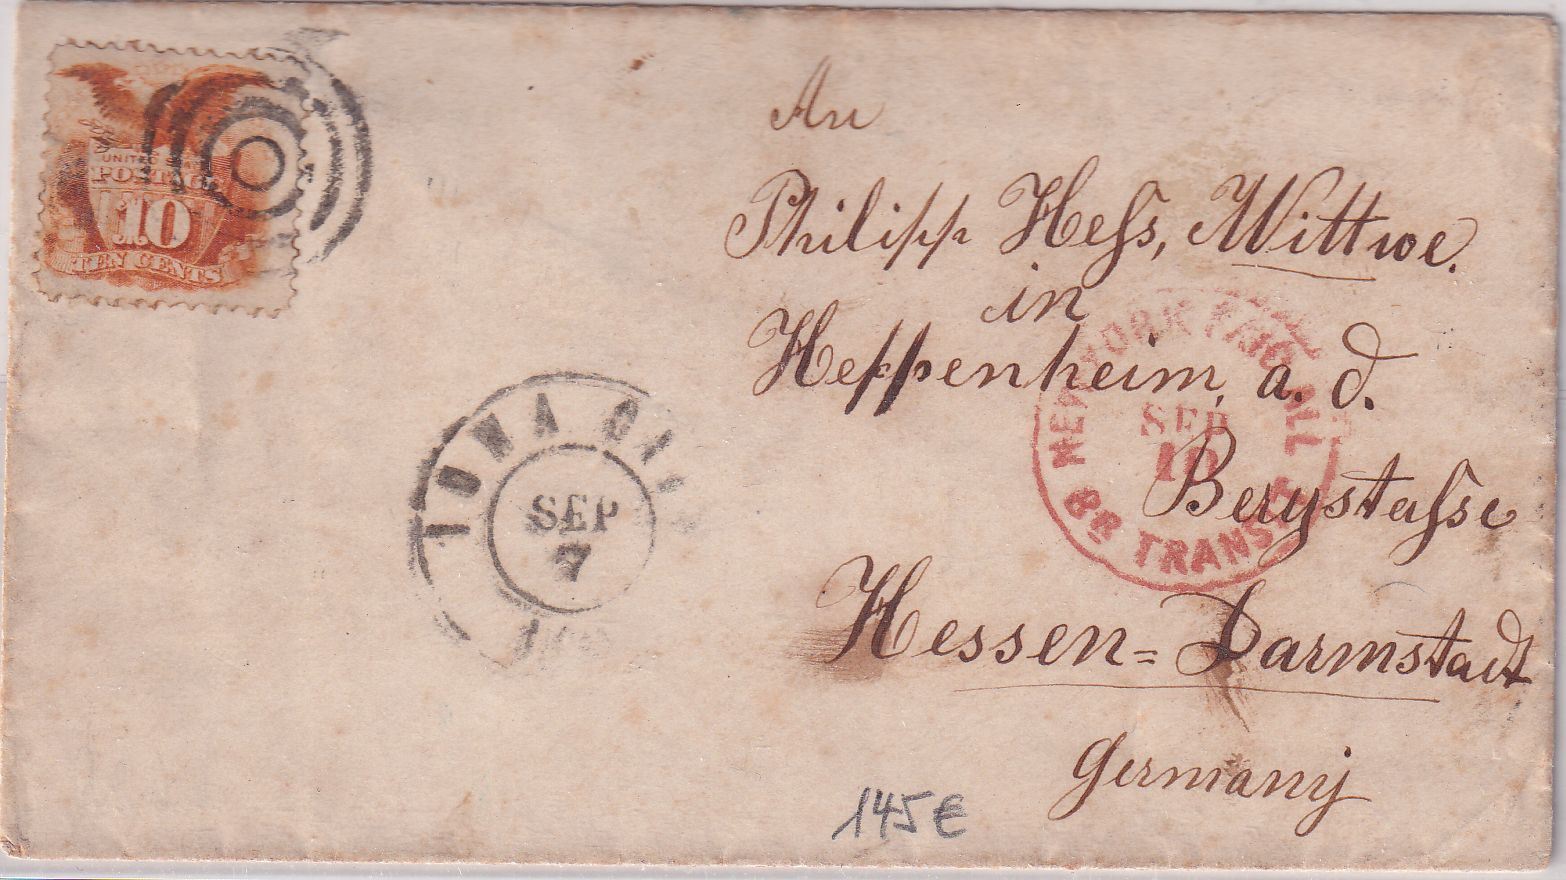 UNITED STATES
POSTAGE
10
TEN CENTS
An
Philipp Heſs, Wittwe.
in
Heppenheim, a. d.
Bergstaſse
Hessen=Darmstadt
Germany
IOWA
SEP
7
NEW YORK
SEP
10
BR TRANSIT
145€